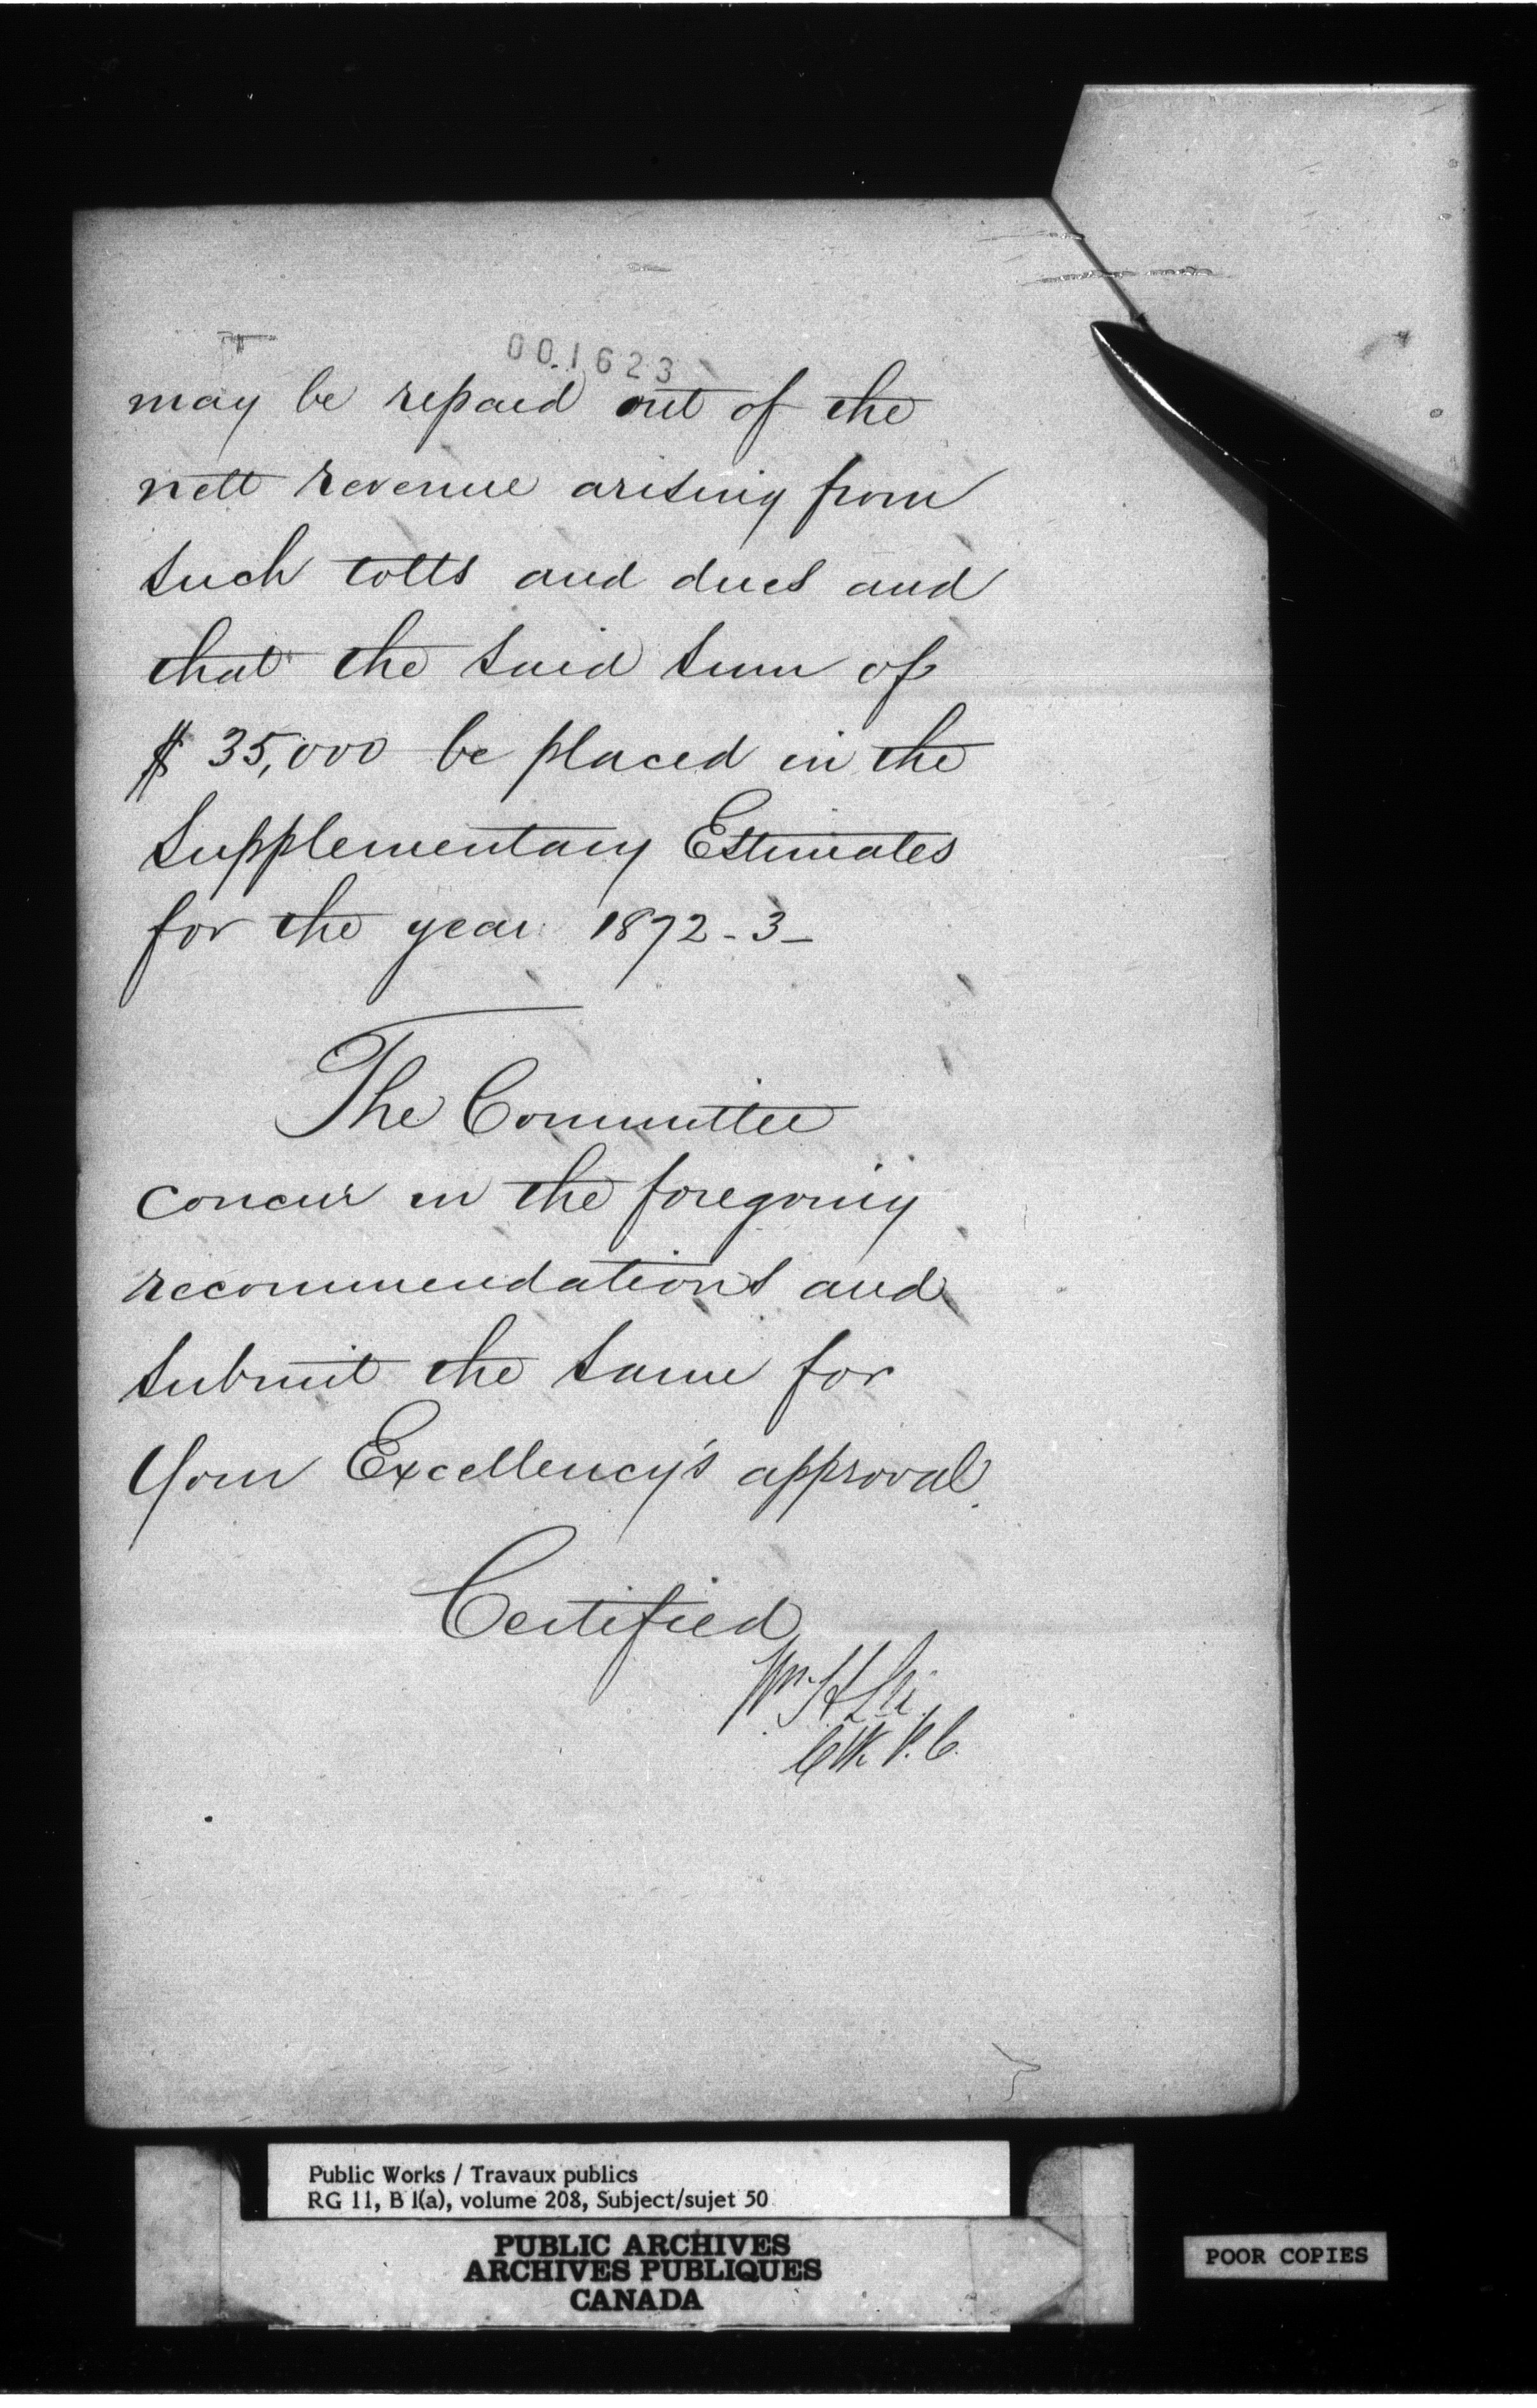 001623
may be repaid out of the
nett revenue arising from
such tolls and dues and
that the said sum of
$ 35,000 be placed in the
Supplementary Estimates
for the year 1872-3-
The Committee
concur in the foregoing
recommendations and
submit the same for
Your Excellency's approval.
Certified
Wm. H Lee
Clk P.C.
Public Works / Travaux publics
RG 11, B 1(a), volume 208, Subject/sujet 50
PUBLIC ARCHIVES
ARCHIVES PUBLIQUES
CANADA
POOR COPIES